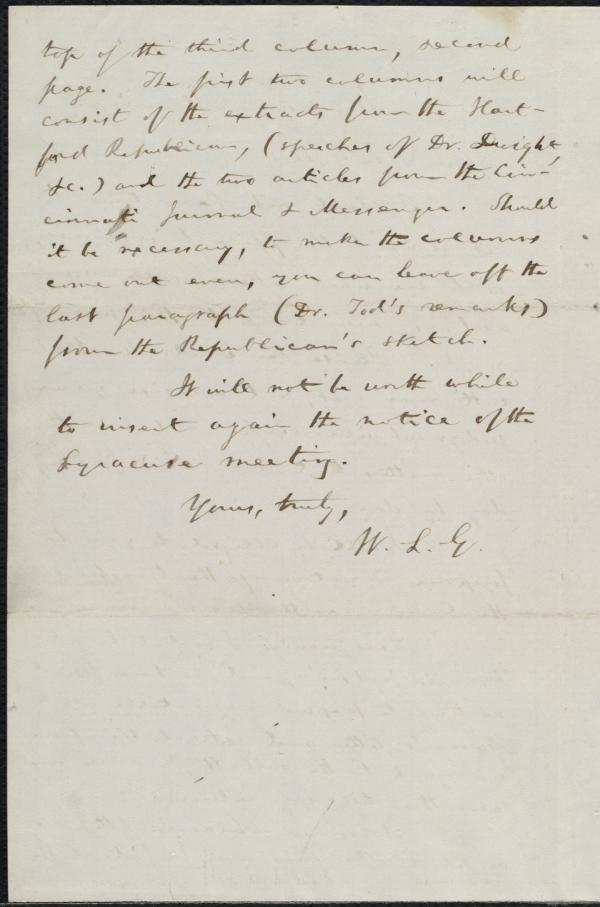 top of the third column, second
page. The first two columns will
consist of the extracts from the Hart-
ford Republican, (speeches of Dr. Dwight,
&c.) and the two articles from the Cin-
cinnati Journal & Messenger. Should
it be necessary, to make the columns
come out even, you can leave off the
last paragraph (Dr. Tod's remarks)
from the Republican's sketch.
It will not be worth while
to insert again the notice of the
Syracuse meeting.
Yours, truly,
W. L. G.